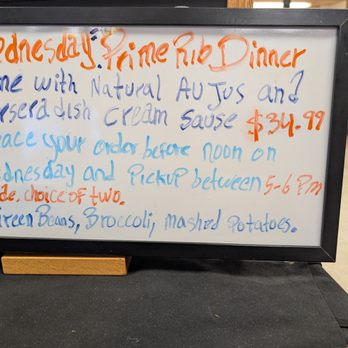 ednesday Prime Rib Dinner
ne with Natural Au Jus and
rseradish Cream Sause $34.99
ace your order before noon on
dnesday and Pickup between 5-6 Pm
de, choice of two.
reen Beans, Broccoli, mashed Potatoes.